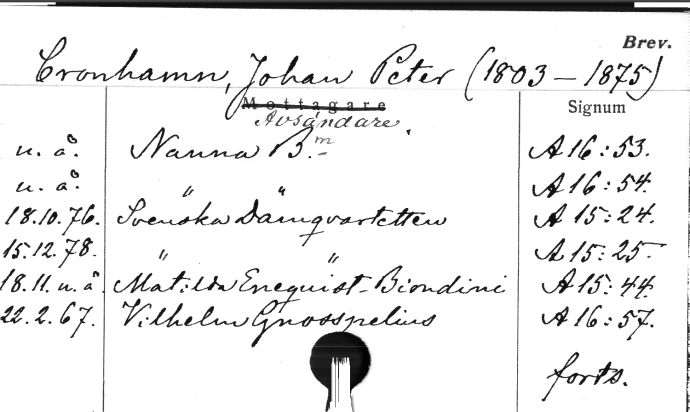 Brev.
Cronhamn, Johan Peter (1803 – 1875)
Mottagare Signum
Avsändare.
u. å. Nanna B.m A 16:53.
u. å. " " A 16:54.
18.10.76. Svenska Damqvartetten A 15:24.
15.12.78. " " A 15:25.
18.11. u. å. Matilda Enequist-Biondini A 15:44.
22.2.67. Vilhelm Gnosspelius A 16:57.
forts.